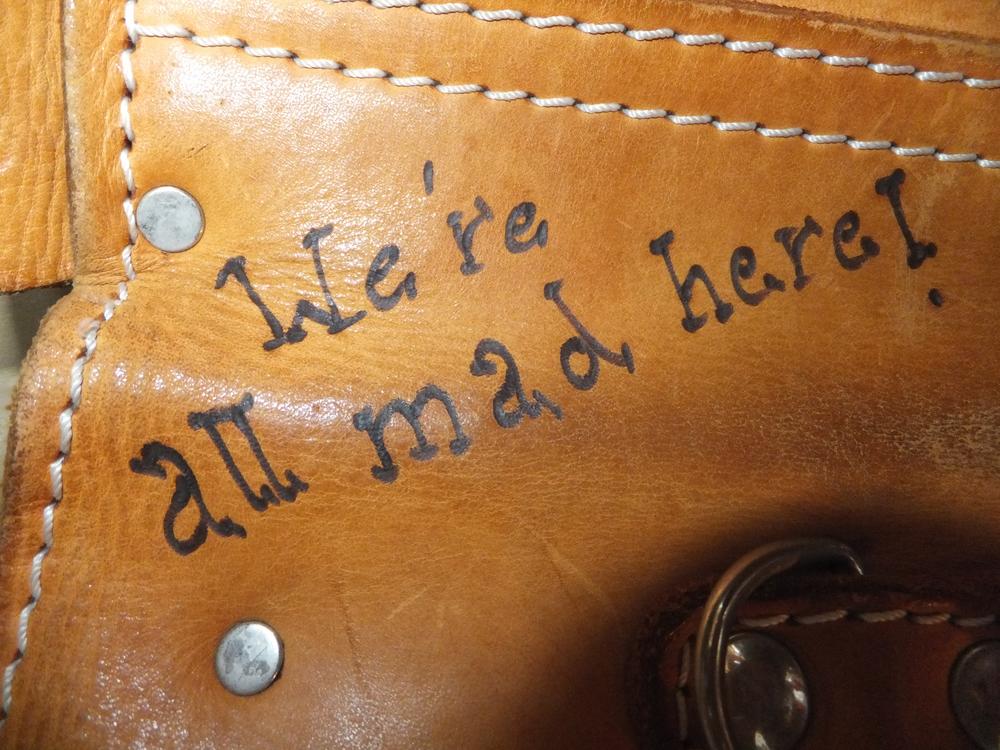 We're
all mad here!